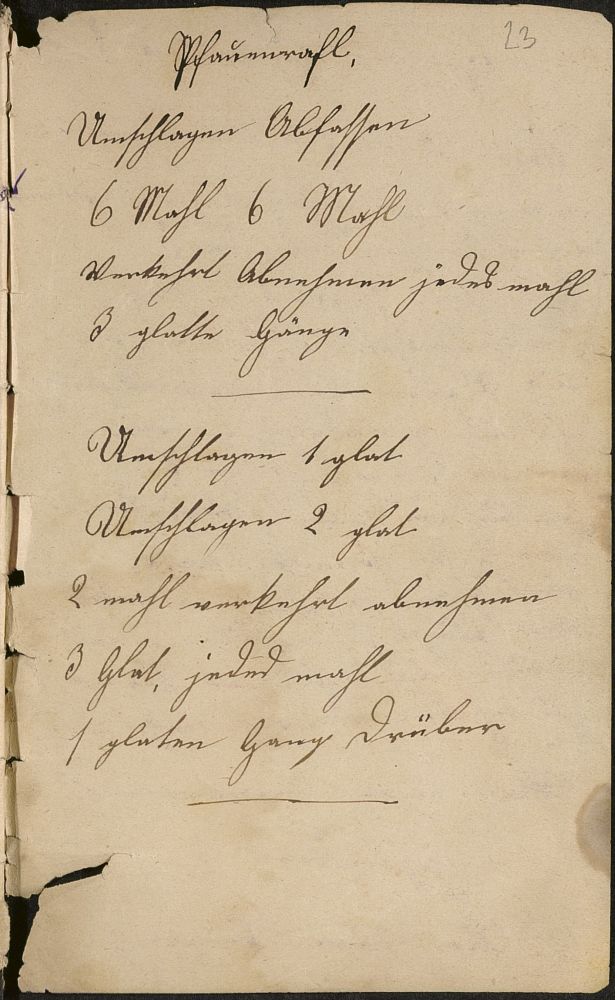 23
Pfauenrafl,
Umschlagen Abfassen
6 Mahl 6 Mahl
Verkehrt Abnehmen jedes mahl
3 glatte Gänge
Umschlagen 1 glat
Umschlagen 2 glat
2 mahl verkehrt abnehmen
3 Glat, jedes mahl
1 glaten Gang drüber